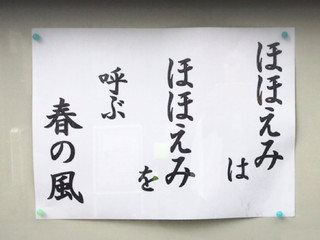 ほほえみは
ほほえみを
呼ぶ
春の風